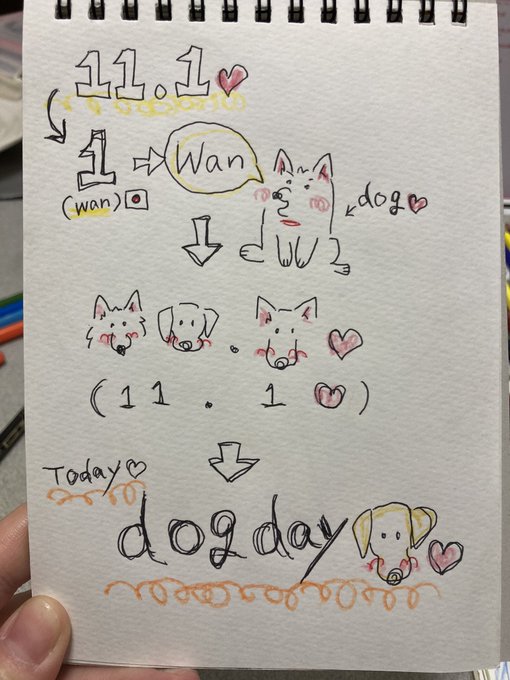 11.1
1
(wan)
Wan
dog
(11.1)
Today
dog day